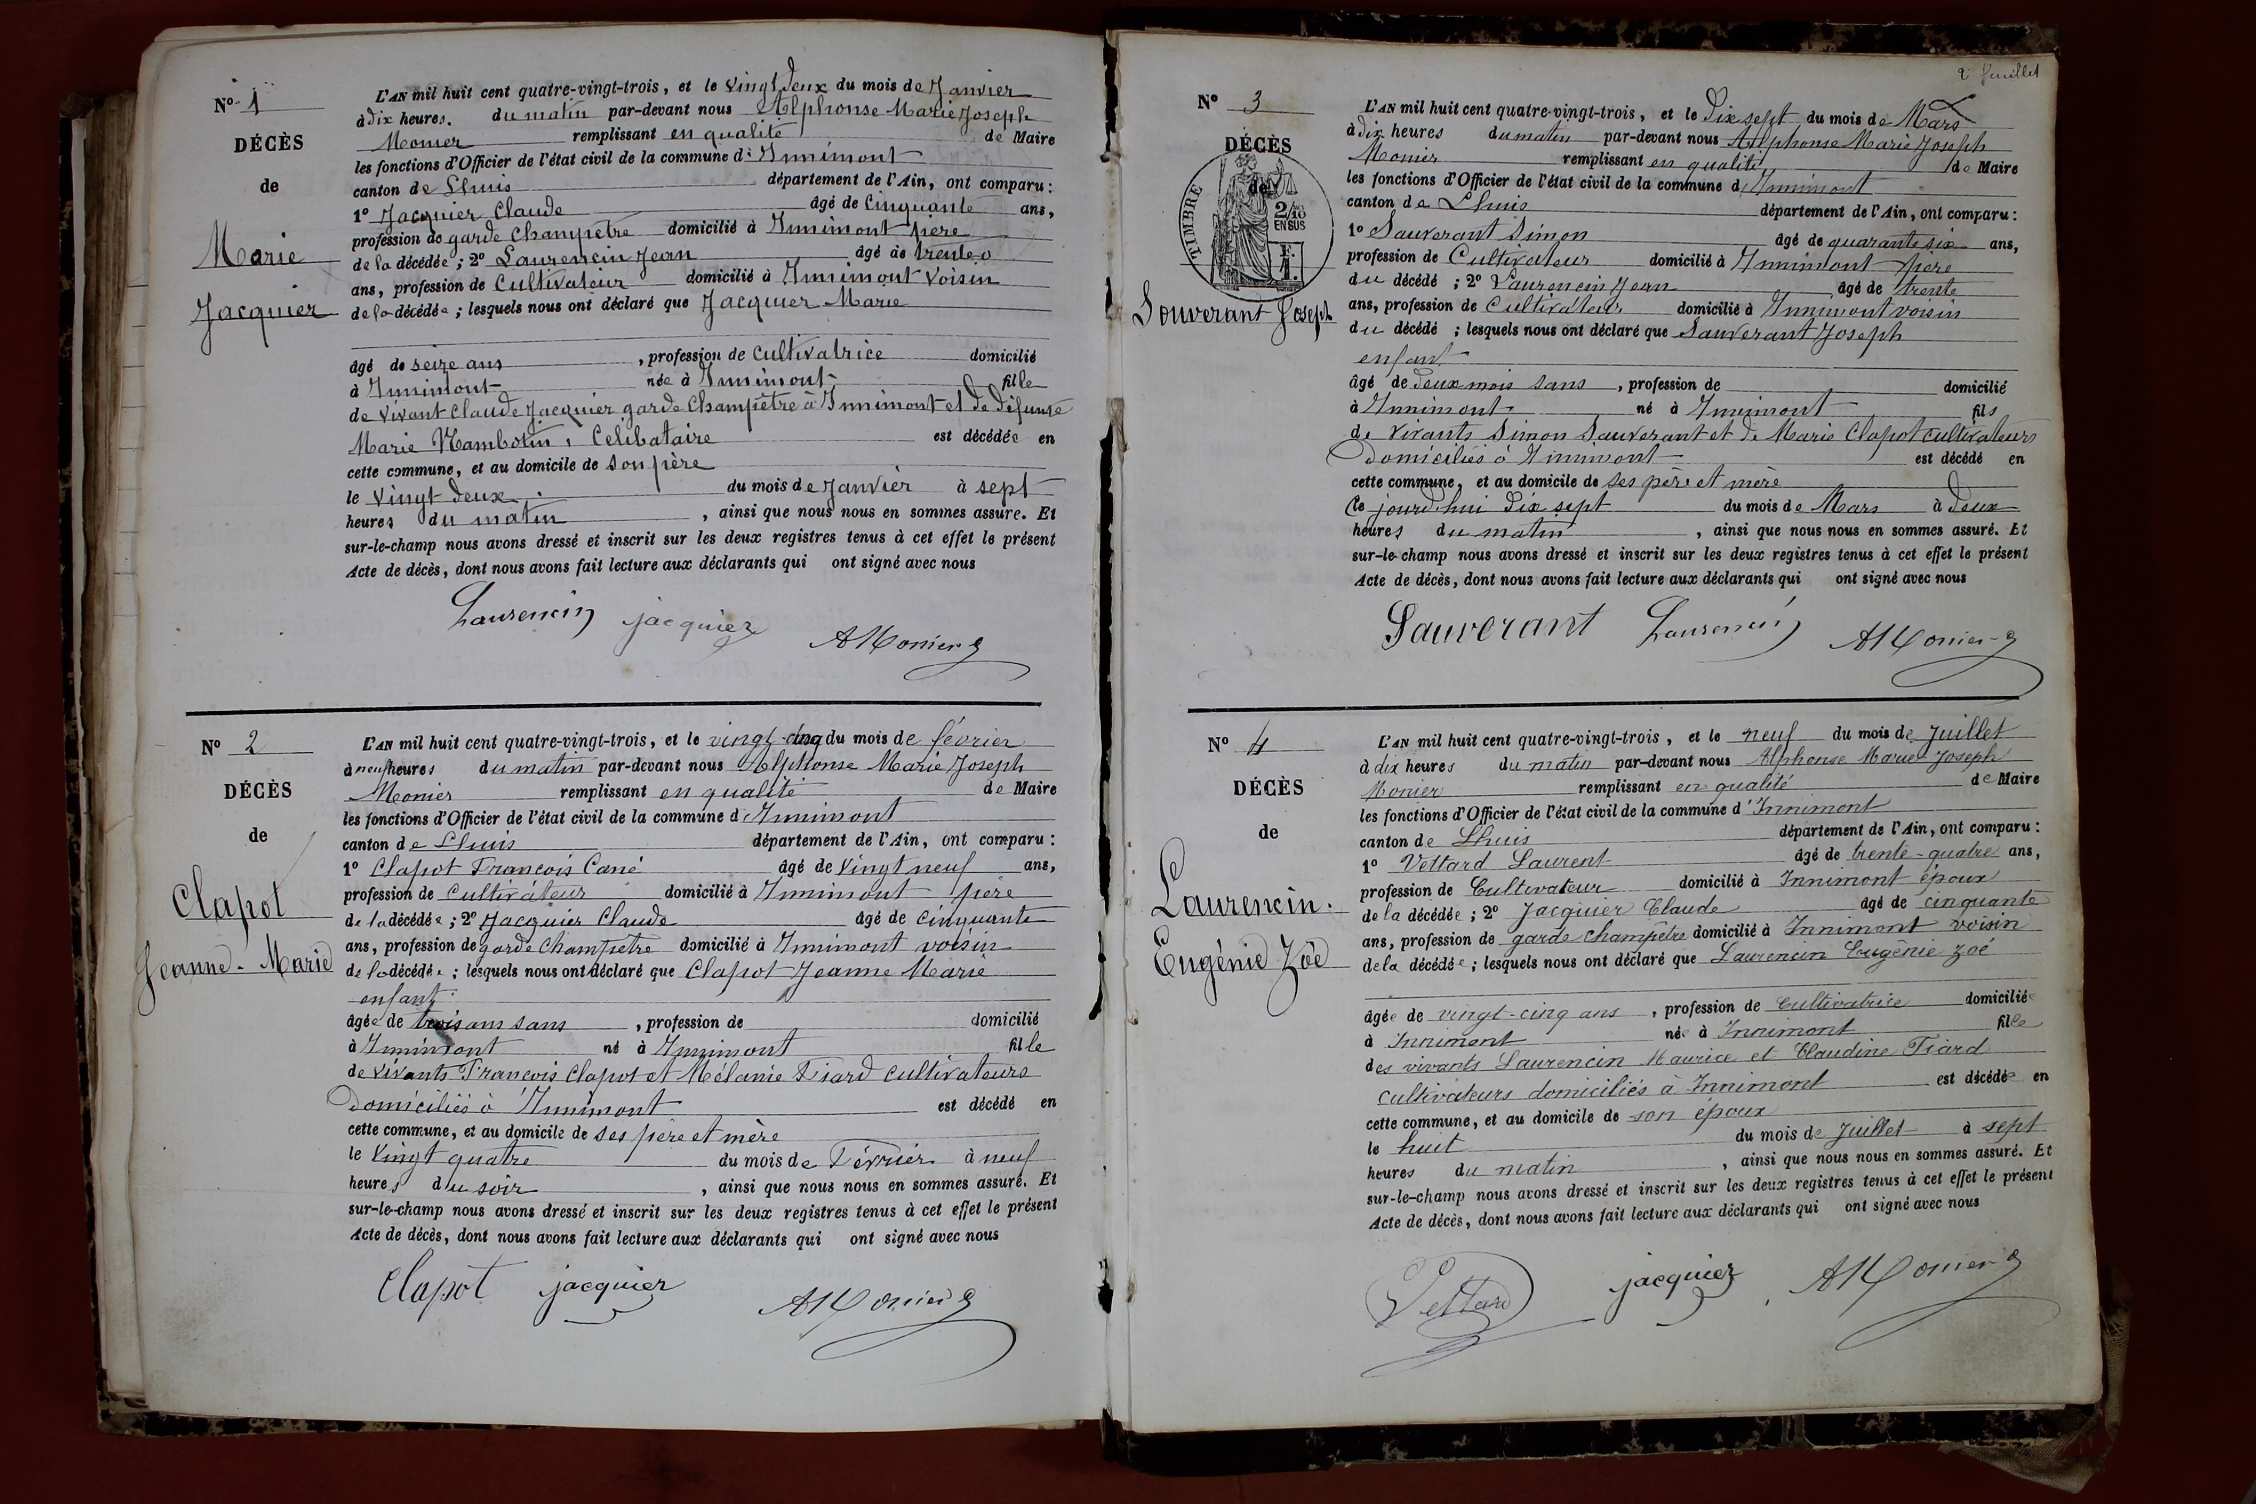 N° 1
DÉCÈS
de
Marie
Jacquier
L'AN mil huit cent quatre-vingt-trois, et le vingt deux du mois de Janvier
à dix heures. du matin par-devant nous Alphonse Marie Joseph
Monier remplissant en qualité de Maire
les fonctions d'Officier de l'état civil de la commune d'Innimont
canton de Lhuis département de l'Ain, ont comparu :
1° Jacquier Claude âgé de cinquante ans,
profession de garde champêtre domicilié à Innimont père
de la décédée ; 2° Laurencin Jean âgé de trente
ans, profession de Cultivateur domicilié à Innimont voisin
de la décédée ; lesquels nous ont déclaré que Jacquier Marie
âgé de seize ans , profession de cultivatrice domicilié
à Innimont née à Innimont fille
de vivant Claude Jacquier garde champêtre à Innimont et de défunte
Marie Mambotin, Célibataire est décédée en
cette commune, et au domicile de son père
le vingt deux du mois de Janvier à sept
heures du matin , ainsi que nous nous en sommes assuré. Et
sur-le-champ nous avons dressé et inscrit sur les deux registres tenus à cet effet le présent
Acte de décès, dont nous avons fait lecture aux déclarants qui ont signé avec nous
Laurencin jacquier AMonier
N° 2
DÉCÈS
de
Clapot
Jeanne-Marie
L'AN mil huit cent quatre-vingt-trois, et le vingt-cinq du mois de février
à neuf heures du matin par-devant nous Alphonse Marie Joseph
Monier remplissant en qualité de Maire
les fonctions d'Officier de l'état civil de la commune d'Innimont
canton de Lhuis département de l'Ain, ont comparu :
1° Clapot François Cané âgé de vingt neuf ans,
profession de cultivateur domicilié à Innimont père
de la décédée ; 2° Jacquier Claude âgé de cinquante
ans, profession de garde champêtre domicilié à Innimont voisin
de la décédée ; lesquels nous ont déclaré que Clapot Jeanne Marie
enfant
âgée de trois ans sans , profession de domicilié
à Innimont né à Innimont fille
de vivants François Clapot et Mélanie Tiard cultivateurs
domiciliés à Innimont est décédé en
cette commune, et au domicile de ses père et mère
le vingt quatre du mois de Février à neuf
heures du soir , ainsi que nous nous en sommes assuré. Et
sur-le-champ nous avons dressé et inscrit sur les deux registres tenus à cet effet le présent
Acte de décès, dont nous avons fait lecture aux déclarants qui ont signé avec nous
Clapot jacquier AMonier
2e feuillet
N° 3
DÉCÈS
de
TIMBRE
2/10
EN SUS
F.
1.
Souverant Joseph
L'AN mil huit cent quatre-vingt-trois, et le Dix sept du mois de Mars
à dix heures du matin par-devant nous Alphonse Marie Joseph
Monier remplissant en qualité de Maire
les fonctions d'Officier de l'état civil de la commune d'Innimont
canton de Lhuis département de l'Ain, ont comparu :
1° Sauverant Simon âgé de quarante six ans,
profession de Cultivateur domicilié à Innimont père
du décédé ; 2° Laurencin Jean âgé de trente
ans, profession de cultivateur domicilié à Innimont voisin
du décédé ; lesquels nous ont déclaré que Sauverant Joseph
enfant
âgé de deux mois sans , profession de domicilié
à Innimont né à Innimont fils
de vivants Simon Sauverant et de Marie Clapot cultivateurs
domiciliés à Innimont est décédé en
cette commune, et au domicile de ses père et mère
Ce jourd'hui dix sept du mois de Mars à deux
heures du matin , ainsi que nous nous en sommes assuré. Et
sur-le-champ nous avons dressé et inscrit sur les deux registres tenus à cet effet le présent
Acte de décès, dont nous avons fait lecture aux déclarants qui ont signé avec nous
Sauverant Laurencin AMonier
N° 4
DÉCÈS
de
Laurencin.
Eugénie Zoè
L'AN mil huit cent quatre-vingt-trois, et le neuf du mois de Juillet
à dix heures du matin par-devant nous Alphonse Marie Joseph
Monier remplissant en qualité de Maire
les fonctions d'Officier de l'état civil de la commune d'Innimont
canton de Lhuis département de l'Ain, ont comparu :
1° Vettard Laurent âgé de trente-quatre ans,
profession de Cultivateur domicilié à Innimont époux
de la décédée ; 2° Jacquier Claude âgé de cinquante
ans, profession de garde champêtre domicilié à Innimont voisin
de la décédée ; lesquels nous ont déclaré que Laurencin Eugénie Zoé
âgée de vingt-cinq ans , profession de Cultivatrice domiciliée
à Innimont née à Innimont fille
des vivants Laurencin Maurice et Claudine Tiard
cultivateurs domiciliés à Innimont est décédée en
cette commune, et au domicile de son époux
le huit du mois de Juillet à sept
heures du matin , ainsi que nous nous en sommes assuré. Et
sur-le-champ nous avons dressé et inscrit sur les deux registres tenus à cet effet le présent
Acte de décès, dont nous avons fait lecture aux déclarants qui ont signé avec nous
Vettard jacquier AMonier